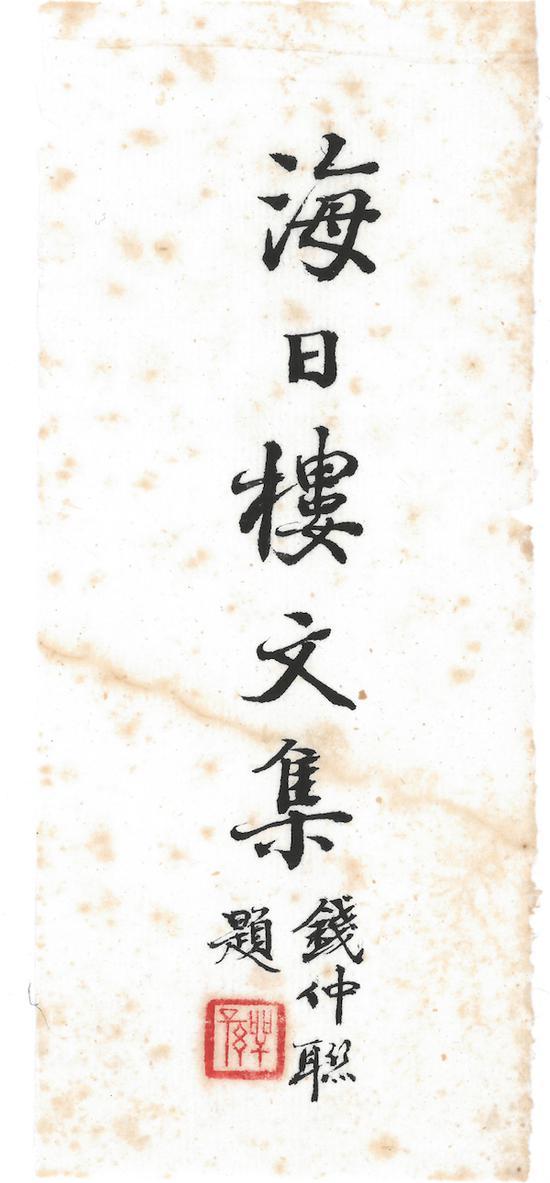 海日樓文集
錢仲聯
題